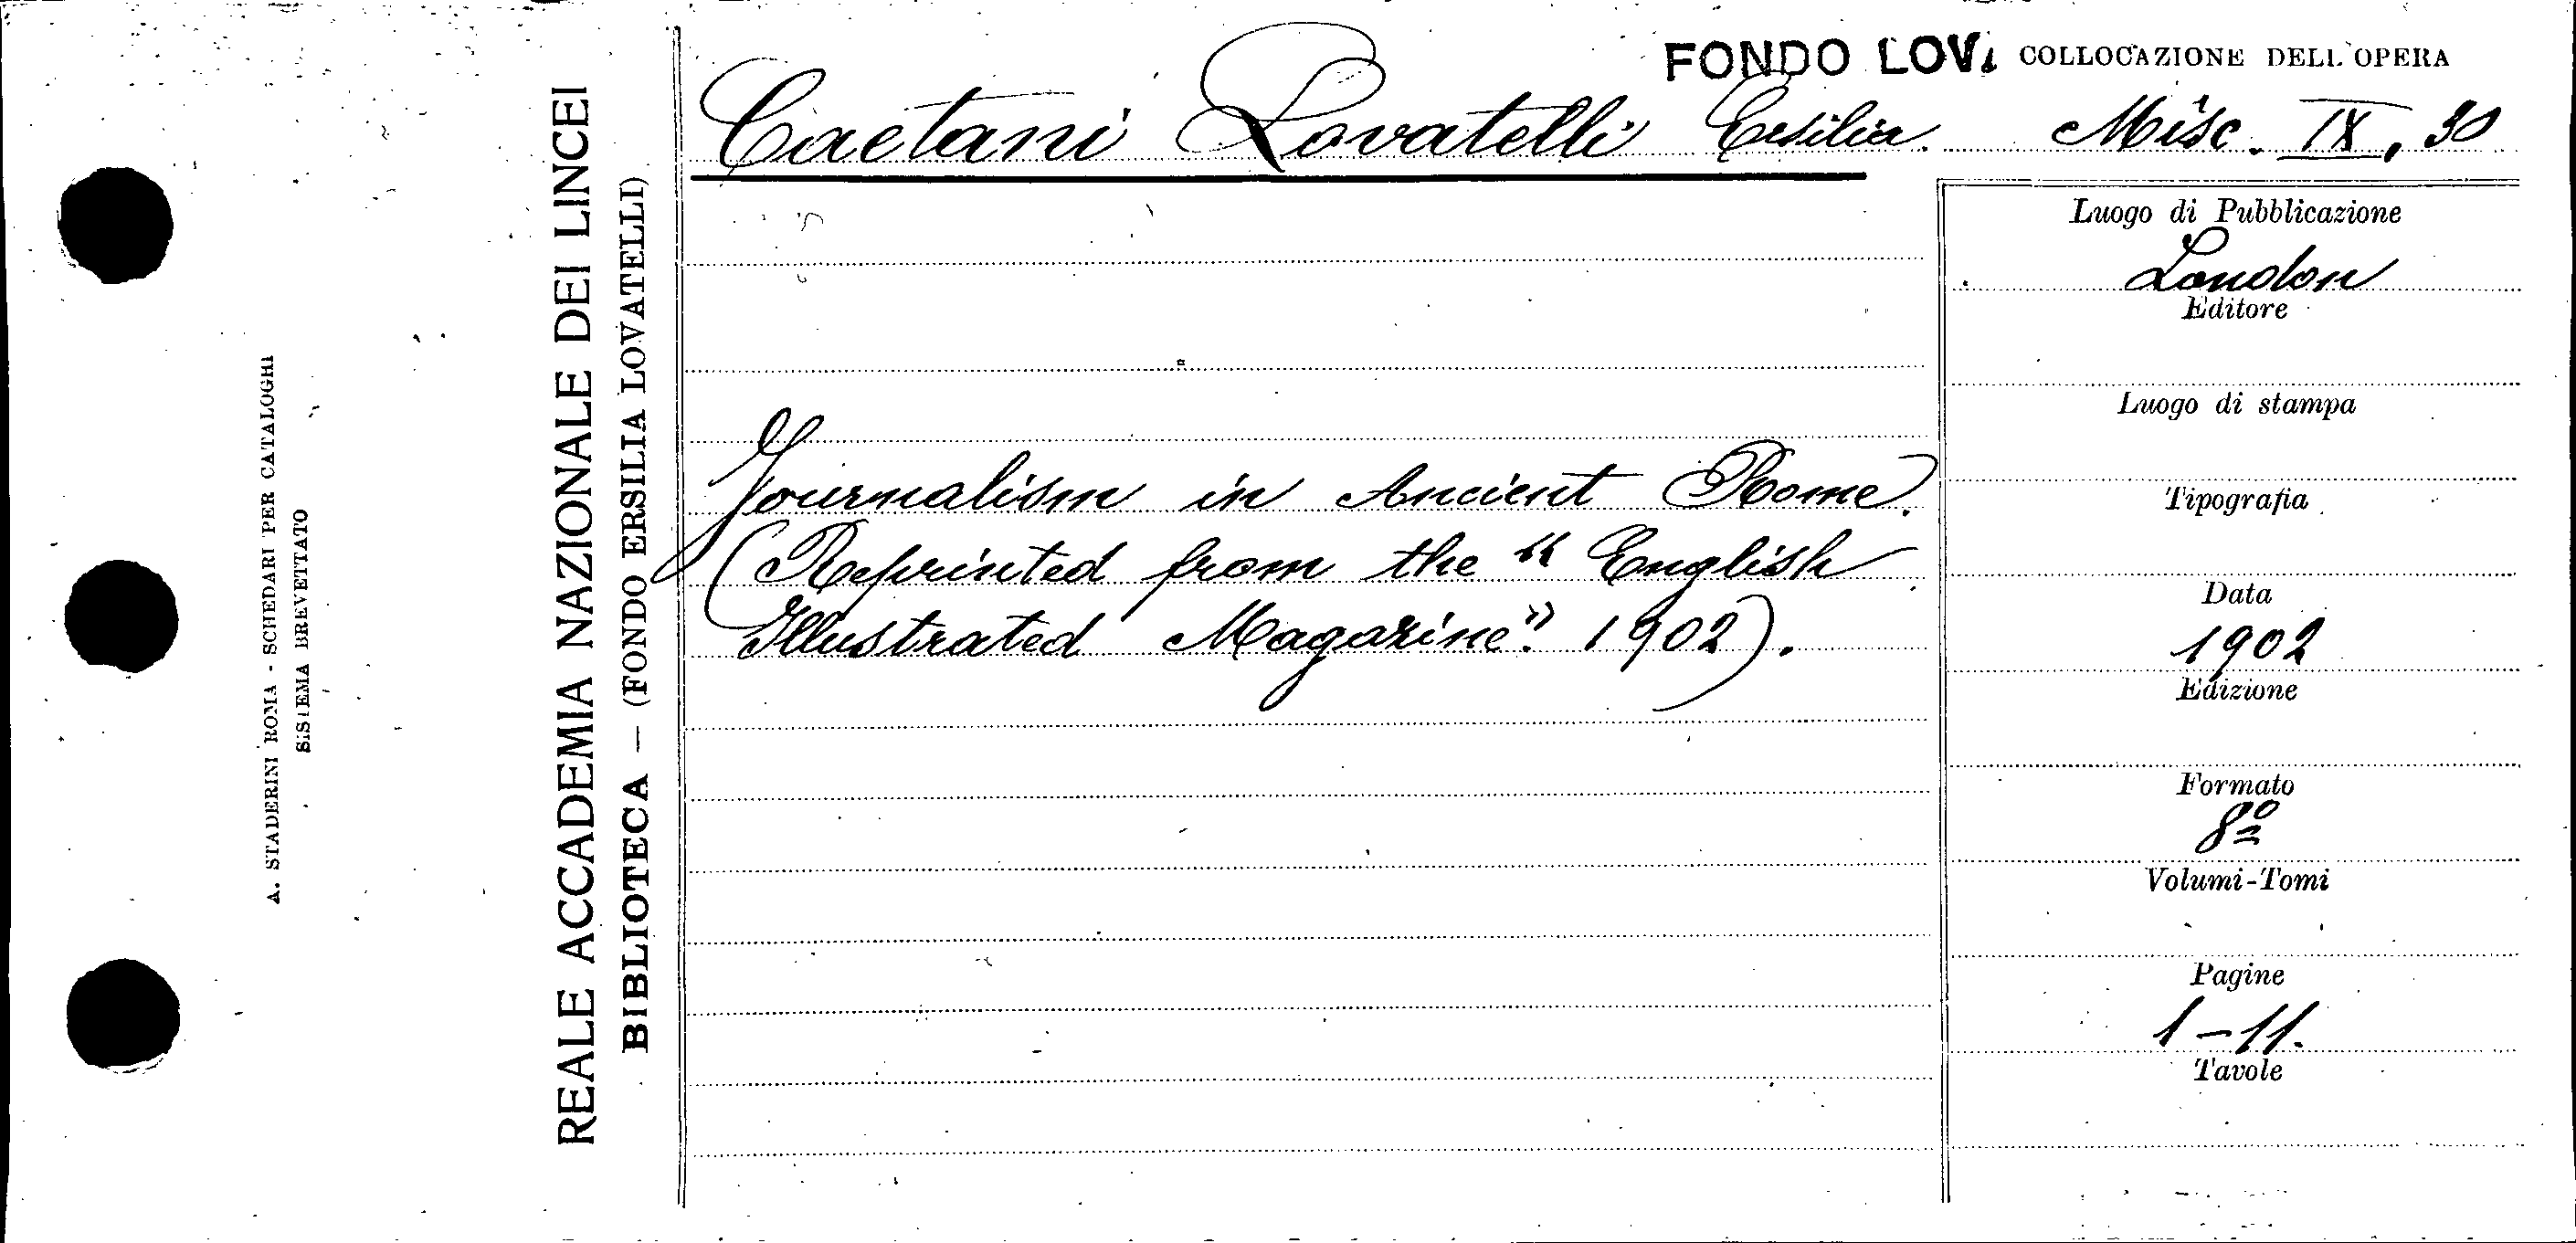 FONDO LOV. COLLOCAZIONE DELL'OPERA
Caetani Lovatelli Ersilia. Misc. IX, 30
Luogo di Pubblicazione
London
Editore
Luogo di stampa
Journalism in Ancient Rome.
Tipografia
(Reprinted from the "English
Data
Illustrated Magazine". 1902).
1902
Edizione
Formato
8º
Volumi-Tomi
Pagine
1-11.
Tavole
REALE ACCADEMIA NAZIONALE DEI LINCEI
BIBLIOTECA — (FONDO ERSILIA LOVATELLI)
A. STADERINI ROMA - SCHEDARI PER CATALOGHI
SISTEMA BREVETTATO